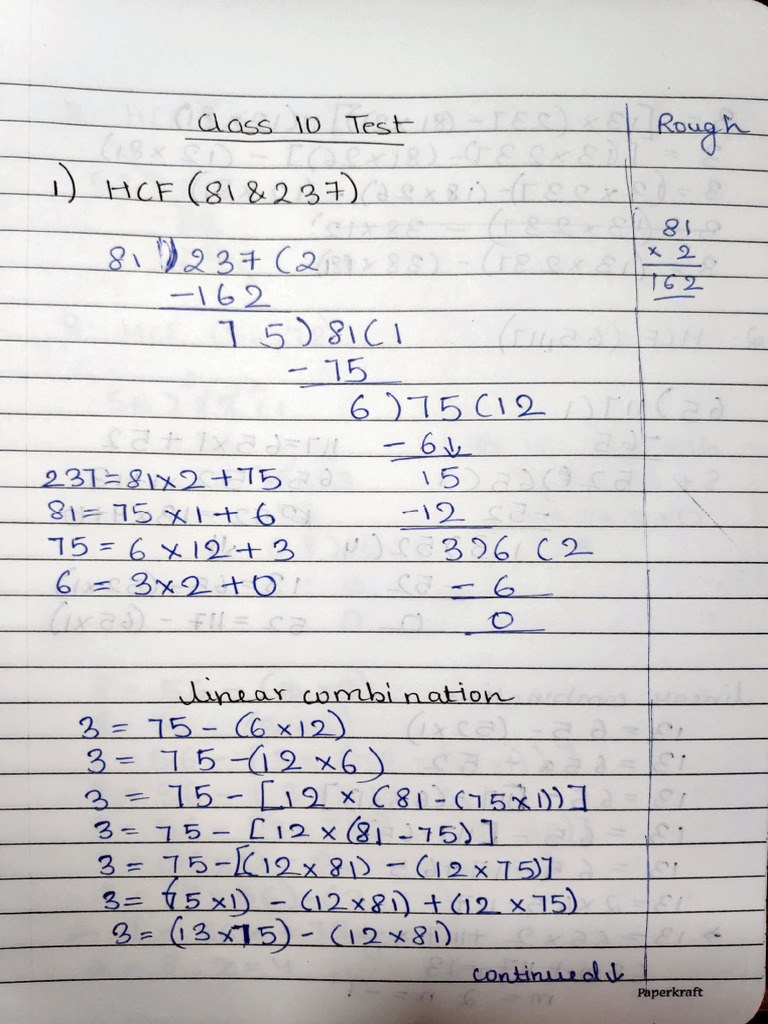 Class 10 Test
Rough
1) HCF (81 & 237)
81 ) 237 ( 2
-162
75 ) 81 ( 1
- 75
6 ) 75 ( 12
- 6↓
15
-12
3 ) 6 ( 2
- 6
0
81
× 2
162
237 = 81 × 2 + 75
81 = 75 × 1 + 6
75 = 6 × 12 + 3
6 = 3 × 2 + 0
linear combination
3 = 75 - (6 × 12)
3 = 75 - (12 × 6)
3 = 75 - [12 × (81 - (75 × 1))]
3 = 75 - [12 × (81 - 75)]
3 = 75 - [(12 × 81) - (12 × 75)]
3 = (75 × 1) - (12 × 81) + (12 × 75)
3 = (13 × 75) - (12 × 81)
continued↓
Paperkraft